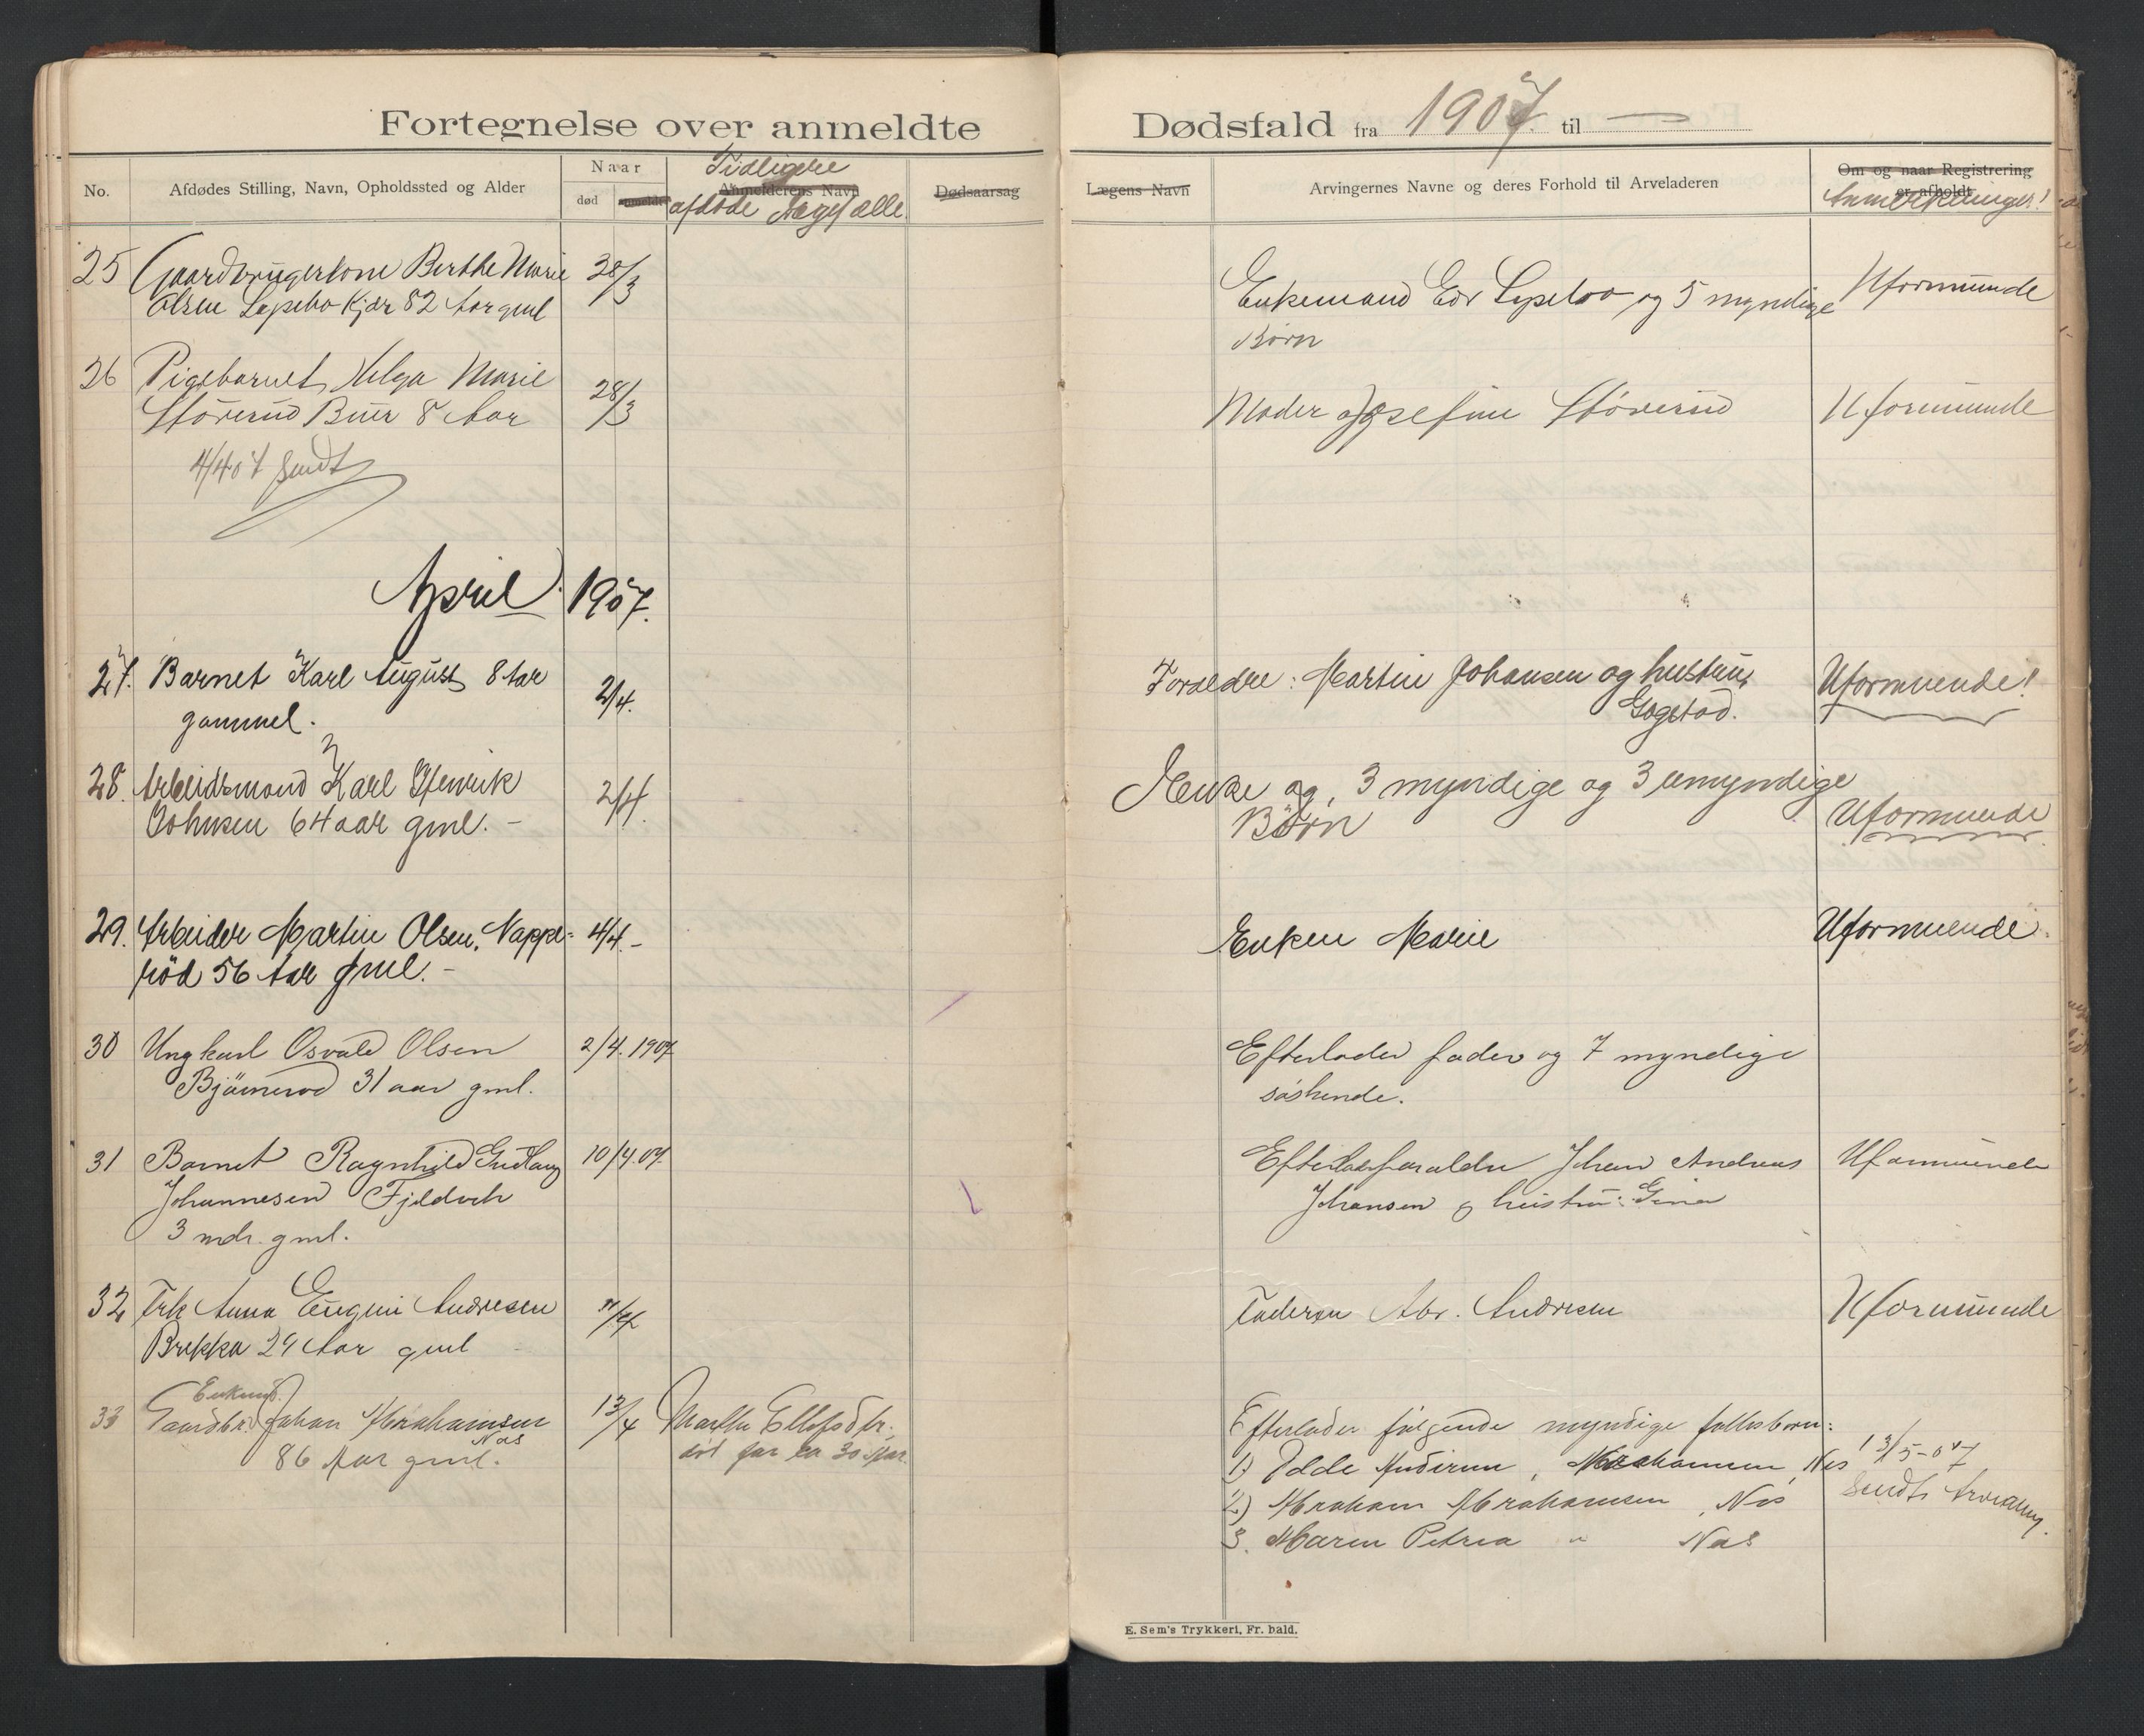 Fortegnelse over anmeldte Dødsfald fra 1907 til —
No.
Afdødes Stilling, Navn, Opholdssted og Alder
Naar
død
anmeldt
Tidligere
Anmelderens Navn
afdøde Ægtefælle.
Dødsaarsag
Lægens Navn
Arvingernes Navne og deres Forhold til Arveladeren
Om og naar Registrering
er afholdt
Anmerkninger!
25 Gaardbrugerkone Berthe Marie 28/3
Olsen Lysebo Kjær 82 Aar gml
Enkemand Edv Lysebo og 5 myndige
Børn
Uformuende
26 Pigebarnet Helga Marie 28/3
Støverud Buer 8 Aar
Moder Josefine Støverud
Uformuende
4/4 07 sendt
April 1907.
27. Barnet Karl August 8 Aar 2/4.
gammel.
Forældre: Martin Johansen og hustru,
Gogstad.
Uformuende!
28. Arbeidsmand Karl Henrik 2/4.
Johnsen 64 aar gml. –
Enke og 3 myndige og 3 umyndige
Børn
Uformuende
29. Arbeider Martin Olsen, Nappe- 4/4 –
rød 56 Aar gml. –
Enken Marie
Uformuende.
30 Ungkarl Osvald Olsen 2/4. 1907
Bjørnerød 31 aar gml.
Efterlader fader og 7 myndige
søskende.
31 Barnet Ragnhild Gudlaug 10/4.07.
Johannesen
3 mdr. gml.
Johan Andreas
Johansen og hustru: Gina
Uformuende
32 Frk Anna Eugeni Andresen /4
Brekka 29 Aar gml
Faderen Abr. Andresen
Uformuende
Enkemd.
33 Gaardbr. Johan Abrahamsen 13/4
Nes
86 Aar gml.
Marthe Ellefsdtr.
død for ca 30 Aar
Efterlader følgende myndige fællesbørn:
1) Abrahamsen, Nes
2) Abraham Abrahamsen, Nes
3. Maren Petrea " Nes
13/5-07
Sendt
E. Sem's Trykkeri, Fr. hald.